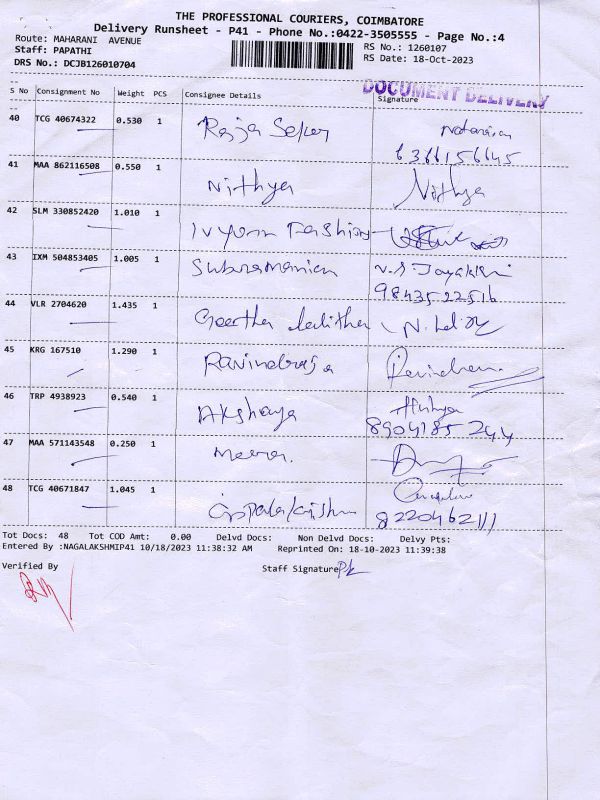 THE PROFESSIONAL COURIERS, COIMBATORE
Delivery Runsheet - P41 - Phone No.:0422-3505555 - Page No.:4
Route: MAHARANI AVENUE
RS No.: 1260107
Staff: PAPATHI
RS Date: 18-Oct-2023
DRS No.: DCJB126010704
DOCUMENT DELIVERY
S No Consignment No Weight PCS Consignee Details Signature
40 TCG 40674322 0.530 1 Raja Seker Natarajan
6366156645
41 MAA 862116508 0.550 1 Nithya Nithya
42 SLM 330852420 1.010 1 Fashion
43 IXM 504853405 1.005 1 Subramanian
9843522516
44 VLR 2704620 1.435 1 Geetha Lalitha
45 KRG 167510 1.290 1 Ravindraja
46 TRP 4938923 0.540 1 Akshaya
8904185244
47 MAA 571143548 0.250 1 Meera.
48 TCG 40671847 1.045 1 Gopalakrishnan
8220462111
Tot Docs: 48 Tot COD Amt: 0.00 Delvd Docs: Non Delvd Docs: Delvy Pts:
Entered By :NAGALAKSHMIP41 10/18/2023 11:38:32 AM Reprinted On: 18-10-2023 11:39:38
Verified By Staff Signature